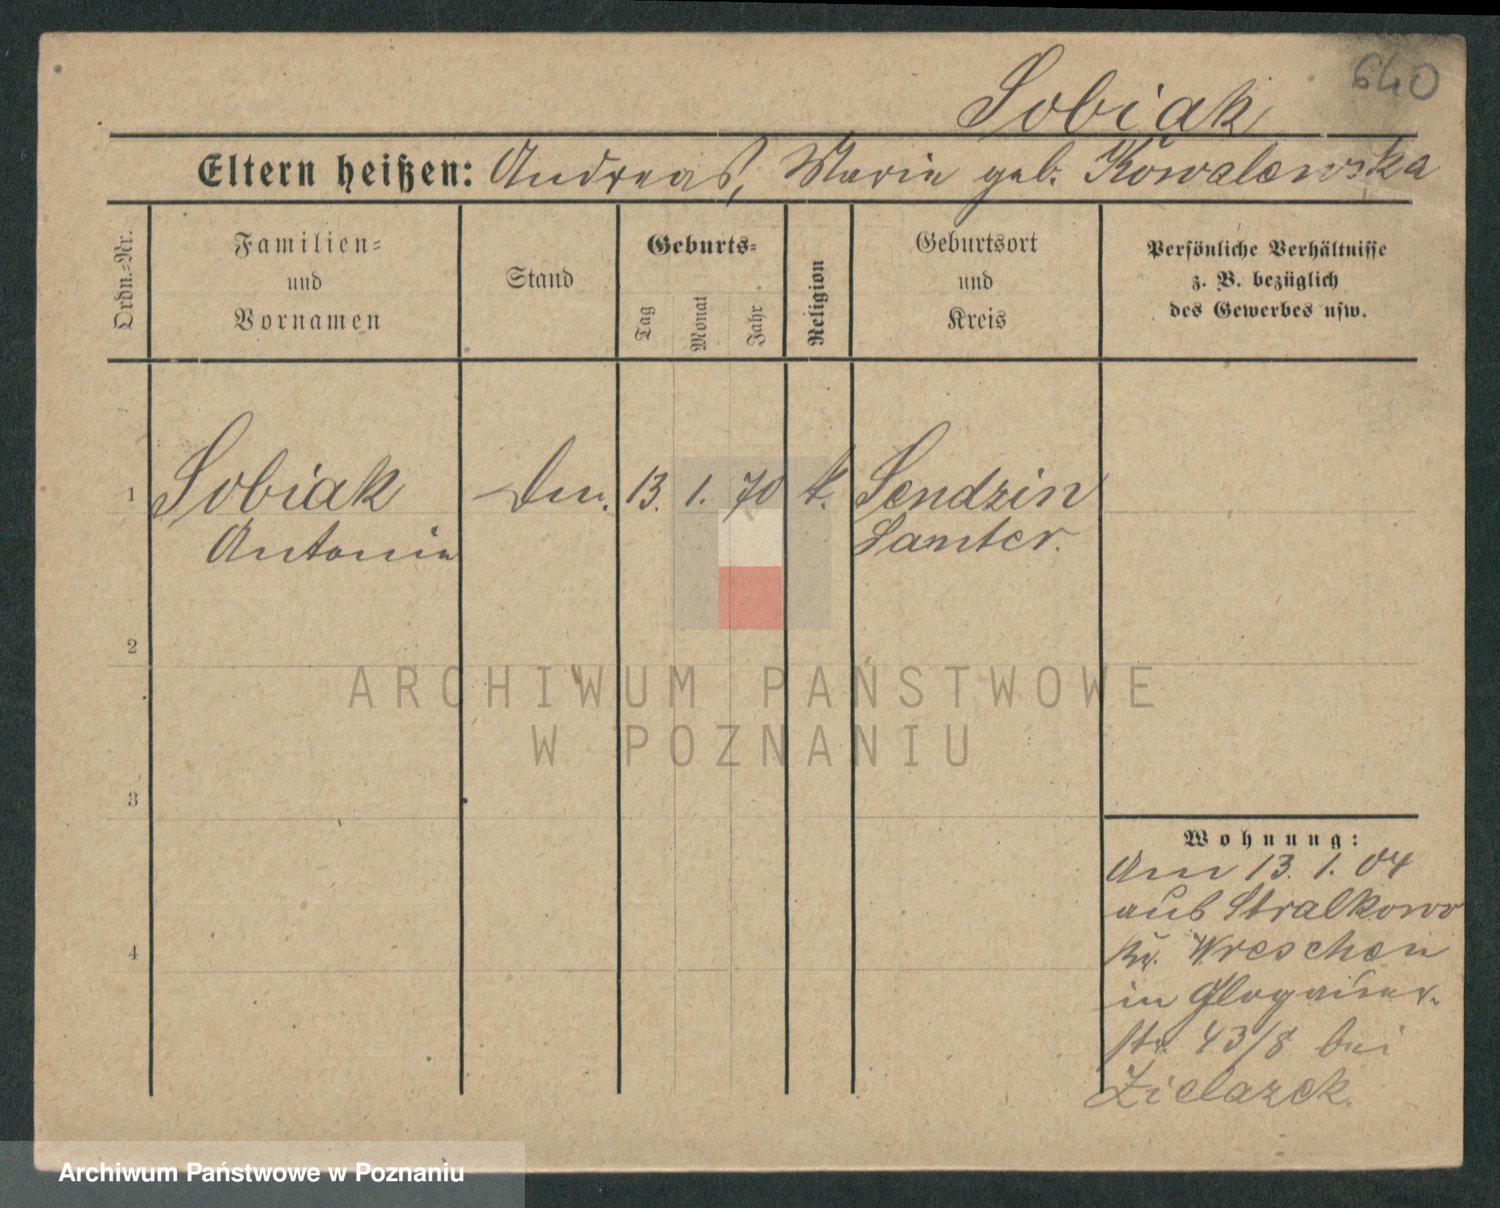 640
Sobiak
Eltern heißen: Andreas, Marie geb. Kowalewska
Ordn.-Nr.
Familien-
und
Vornamen
Stand
Geburts-
Tag
Monat
Jahr
Religion
Geburtsort
und
Kreis
Persönliche Verhältnisse
z. B. bezüglich
des Gewerbes usw.
1 Sobiak 13. 1. 70 k. Sendzin
Antonie Samter.
2
3
4
Wohnung:
Am 13. 1. 04
aus Stralkowo
Kr. Wreschen
in Glogauer-
str. 43/8 bei
Zielazek.
ARCHIWUM PAŃSTWOWE
W POZNANIU
Archiwum Państwowe w Poznaniu